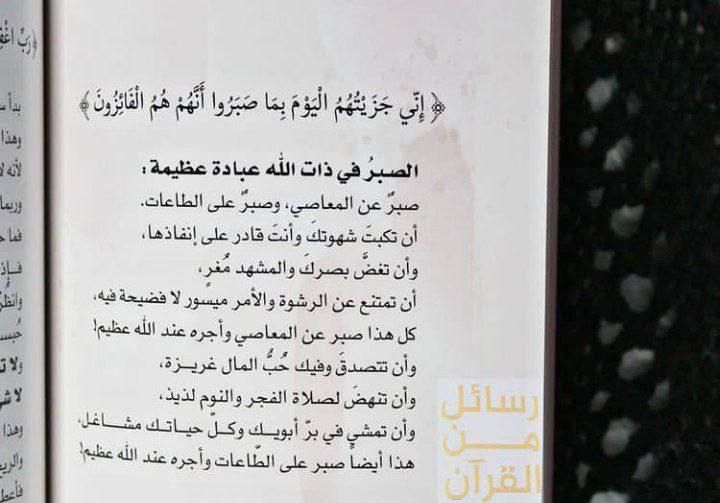 ﴿ إِنِّي جَزَيْتُهُمُ الْيَوْمَ بِمَا صَبَرُوا أَنَّهُمْ هُمُ الْفَائِزُونَ ﴾
الصبرُ في ذات الله عبادة عظيمة :
صبرٌ عن المعاصي، وصبرٌ على الطاعات.
أن تكبتَ شهوتكَ وأنتَ قادر على إنفاذها،
وأن تغضَّ بصركَ والمشهد مُغرٍ،
أن تمتنع عن الرشوة والأمر ميسور لا فضيحة فيه،
كل هذا صبر عن المعاصي وأجره عند الله عظيم!
وأن تتصدقَ وفيك حُبُّ المال غريزة،
وأن تنهضَ لصلاة الفجر والنوم لذيذ،
وأن تمشي في برّ أبويك وكلّ حياتك مشاغل،
هذا أيضاً صبر على الطّاعات وأجره عند الله عظيم!
رسائل
من
القرآن
﴿رَبِّ
بدأ
وهذا
لأنه
وربما